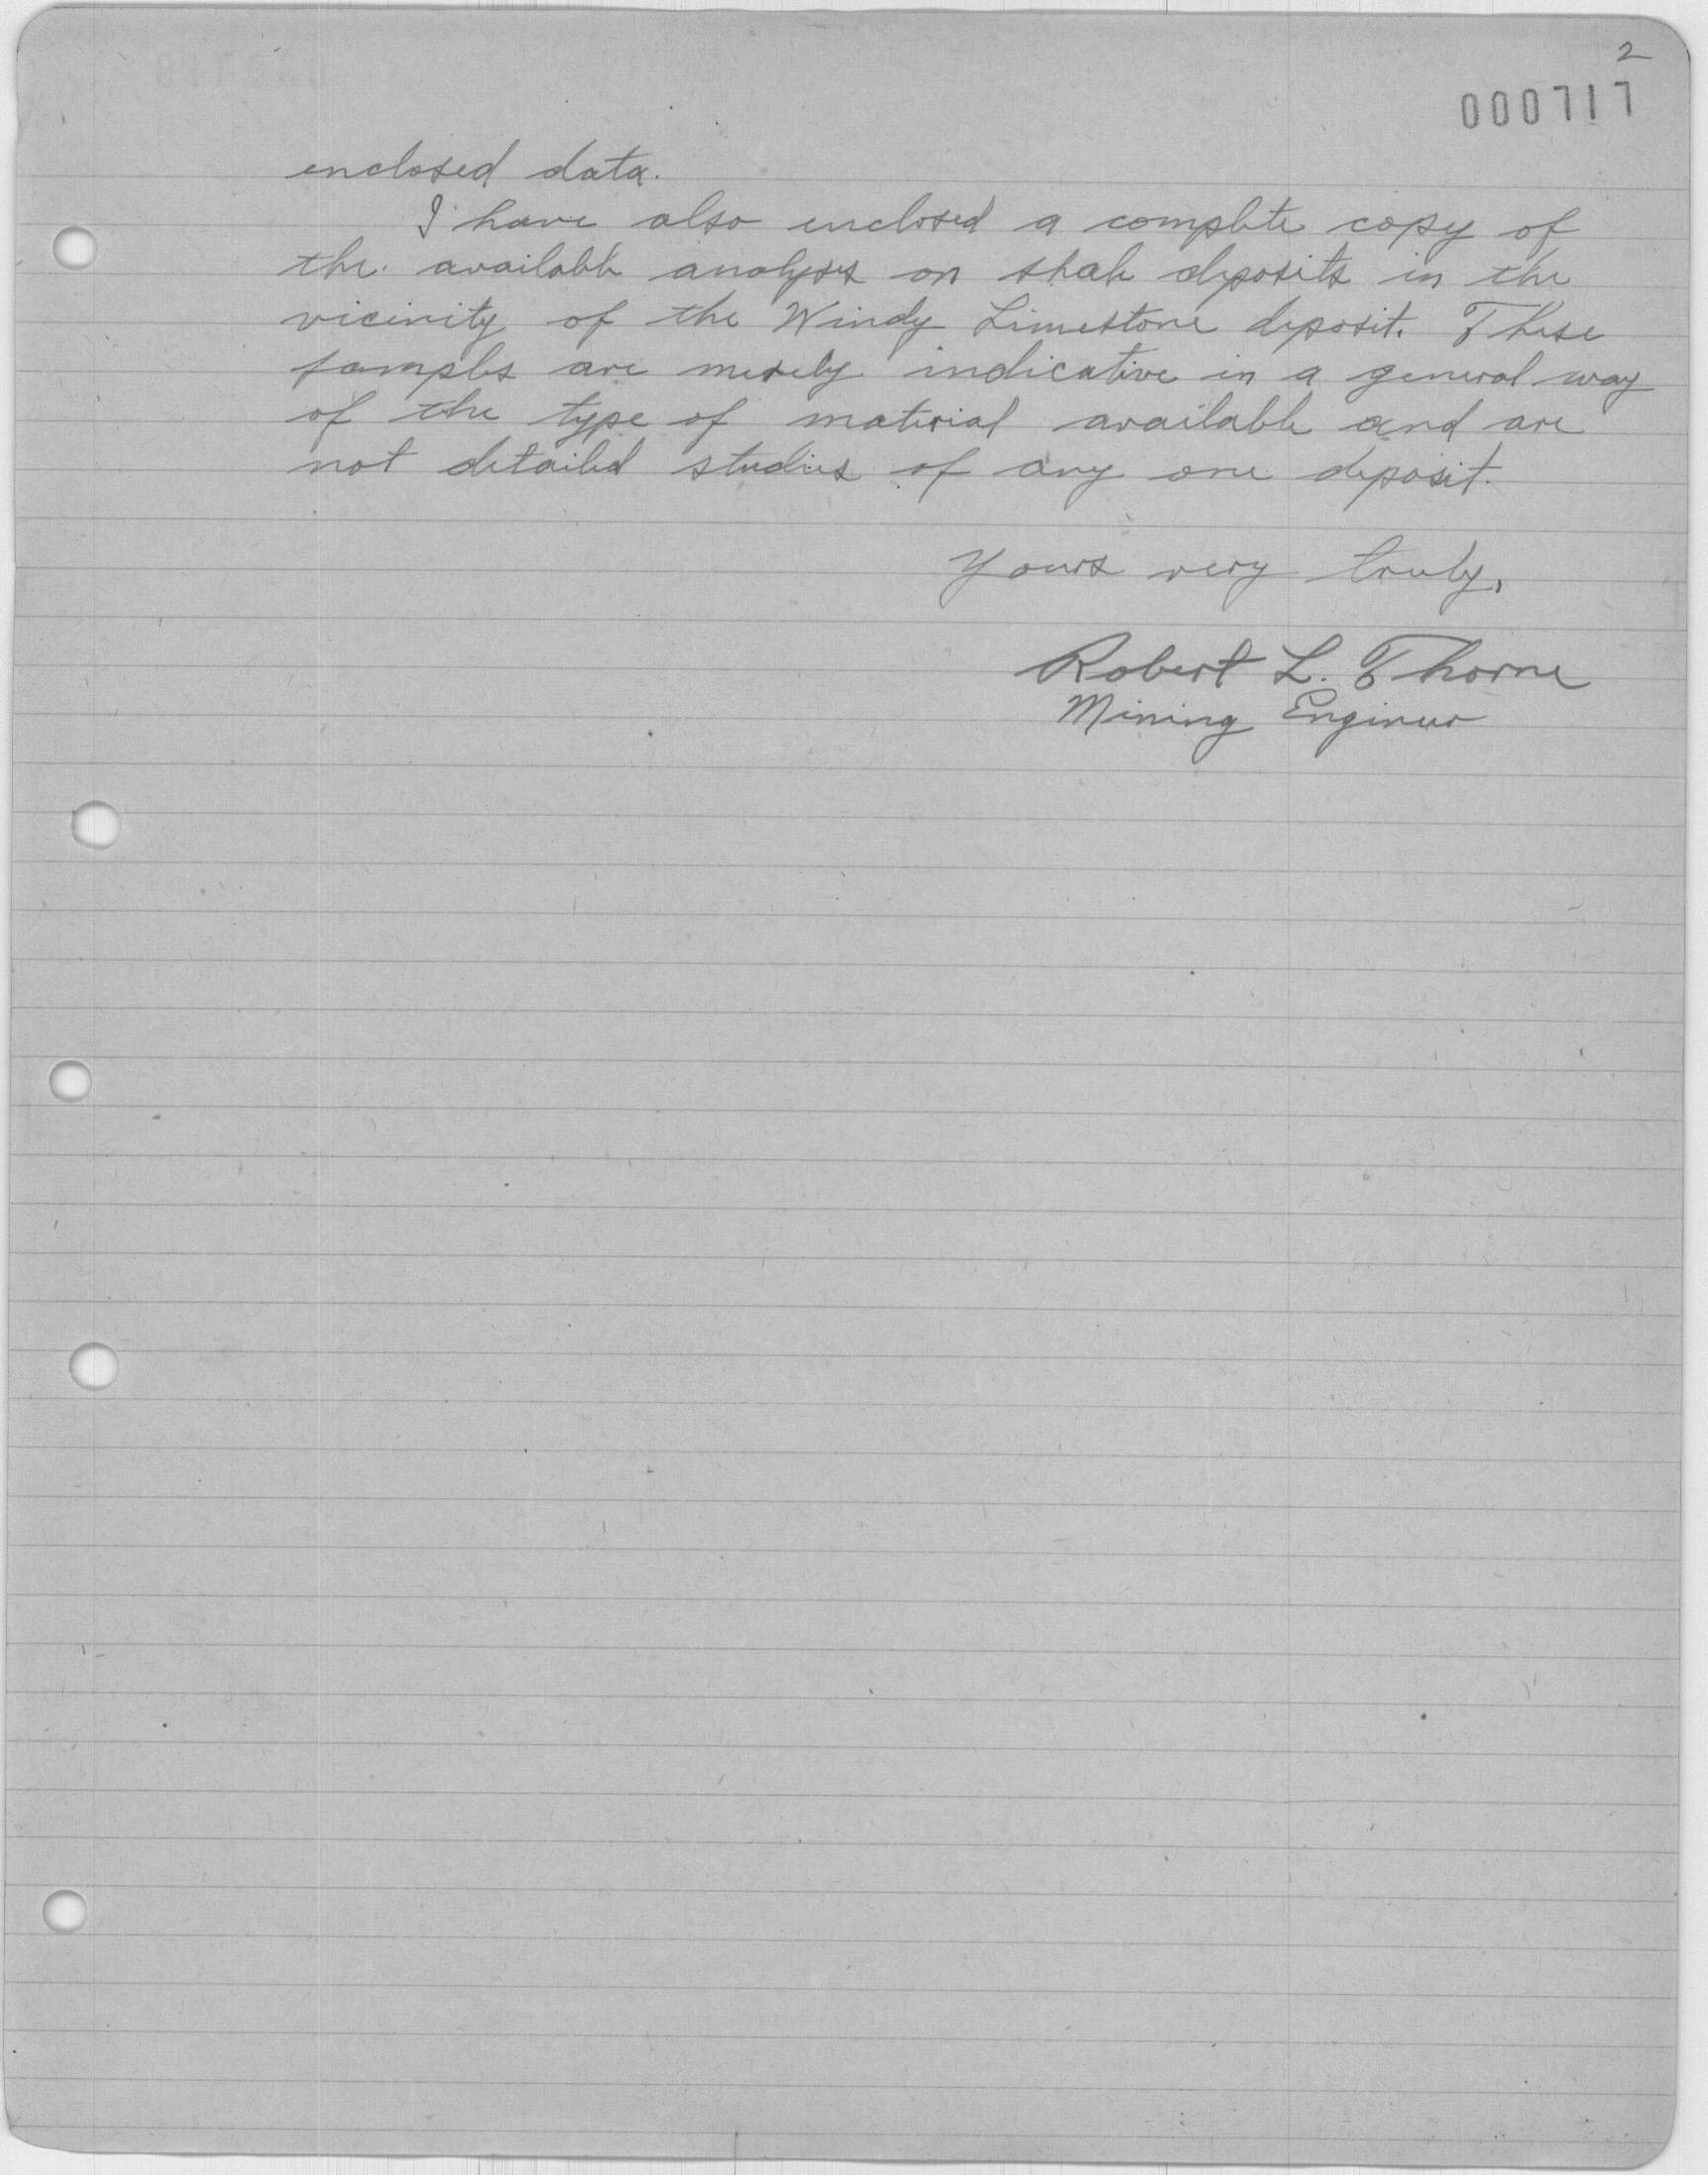 2
000717
enclosed data.
I have also enclosed a complete copy of
the available analyses on shale deposits in the
vicinity of the Windy Limestone deposit. These
samples are merely indicative in a general way
of the type of material available and are
not detailed studies of any one deposit.
Yours very truly,
Robert L. Thorne
Mining Engineer